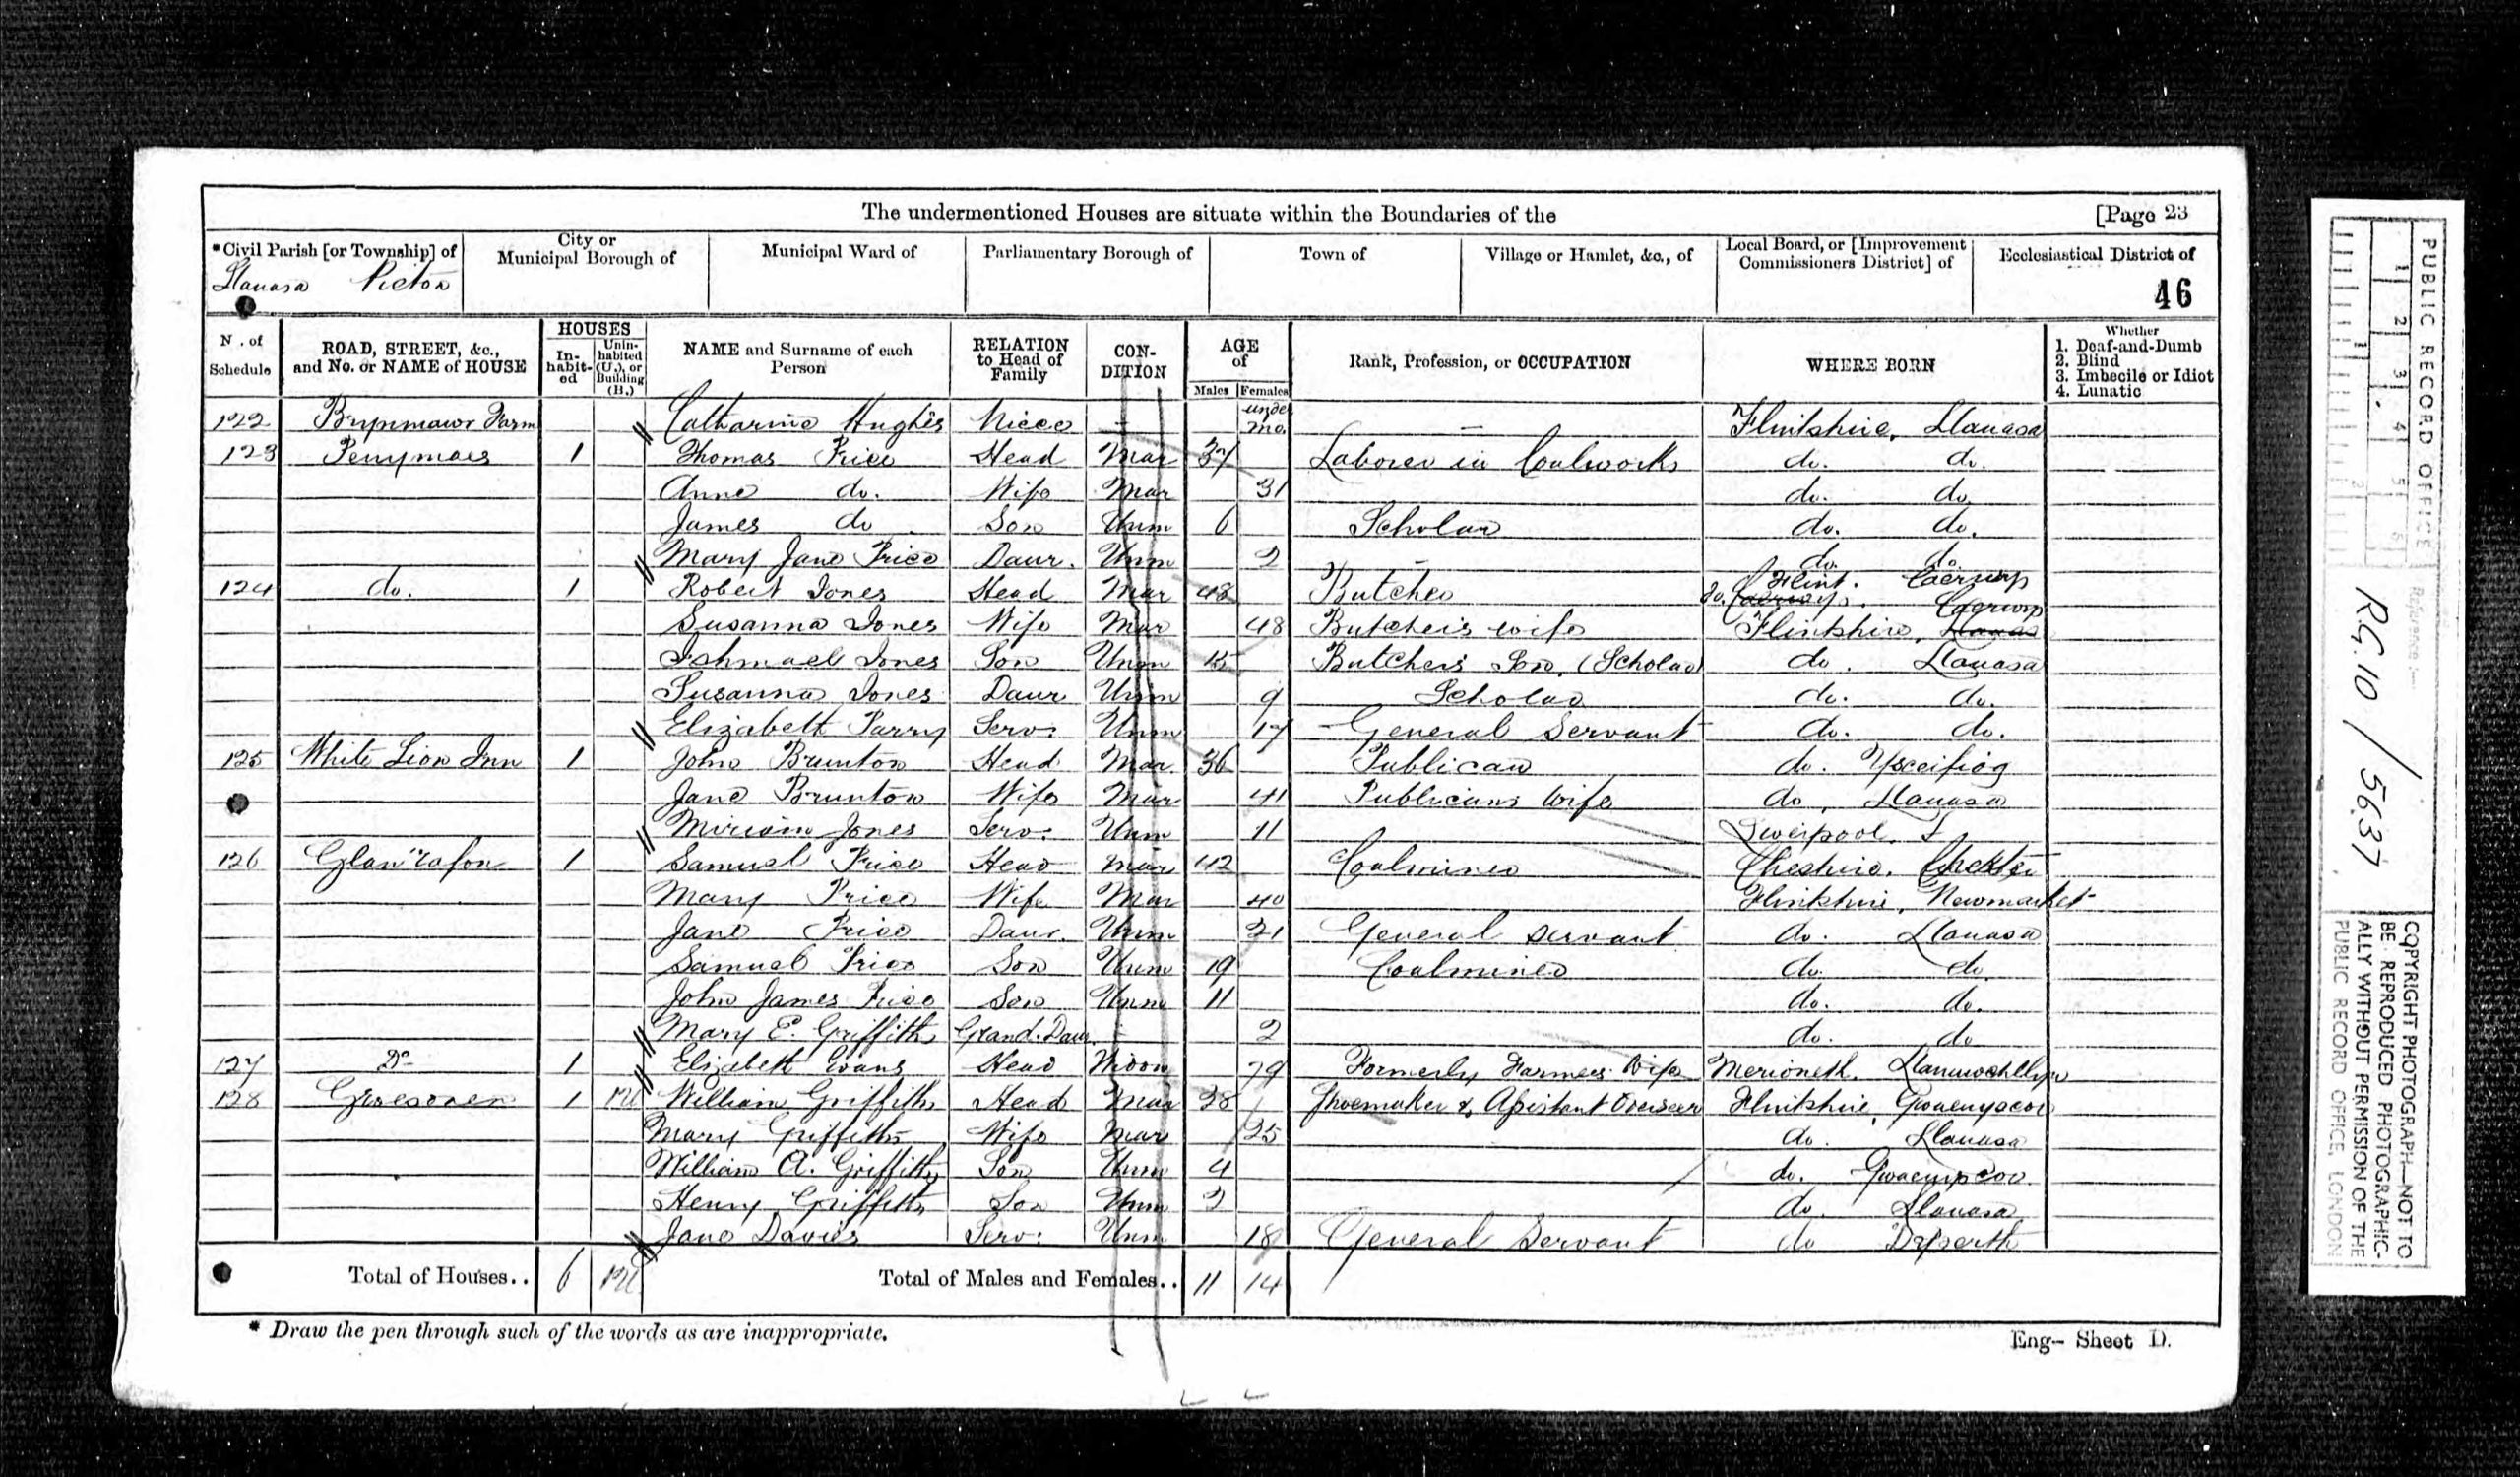 The undermentioned Houses are situate within the Boundaries of the [Page 23
*Civil Parish [or Township] of City or Municipal Borough of Municipal Ward of Parliamentary Borough of Town of Village or Hamlet, &c., of Local Board, or [Improvement Commissioners District] of Ecclesiastical District of
Llanasa Picton 46
N . of Schedule ROAD, STREET, &c., and No. or NAME of HOUSE HOUSES In-habit-ed Unin-habited (U.), or Building (B.) NAME and Surname of each Person RELATION to Head of Family CON-DITION AGE of Males Females Rank, Profession, or OCCUPATION WHERE BORN Whether 1. Deaf-and-Dumb 2. Blind 3. Imbecile or Idiot 4. Lunatic
122 Brynmawr Farm Catharine Hughes Niece - unde mo. - Flintshire, Llanasa
123 Penymaes 1 Thomas Price Head Mar 37 Laborer in Coalworks do. do.
Anne do. Wife Mar 31 do. do.
James do Son Unm 6 Scholar do. do.
Mary Jane Price Daur. Unm 2 - do. do.
124 do. 1 Robert Jones Head Mar 48 Butcher do. Flint. Caerwys
Susanna Jones Wife Mar 48 Butcher's wife Flintshire, Llanasa Caerwys
Ishmael Jones Son Unm 15 Butcher's Son, (Scholar) do. Llanasa
Susanna Jones Daur Unm 9 Scholar do. do.
Elizabeth Parry Serv: Unm 17 General Servant do. do.
125 White Lion Inn 1 John Brunton Head Mar. 36 Publican do. Ysceifiog
Jane Brunton Wife Mar 41 Publicans Wife do, Llanasa
Miriam Jones Serv: Unm 11 Liverpool.
126 Glan'rafon 1 Samuel Price Head Mar 42 Coalminer Cheshire. Chester
Mary Price Wife Mar 40 Flintshire, Newmarket
Jane Price Daur. Unm 21 General Servant do. Llanasa
Samuel Price Son Unm 19 Coalminer do. do.
John James Price Son Unm 11 do. do.
Mary E. Griffiths Grand.Daur. - 2 do. do
127 Do 1 Elizabeth Evans Head Widow 79 Formerly Farmers Wife Merioneth.
128 Groesonen 1 1U William Griffiths Head Mar 28 Shoemaker & Assistant Overseer Flintshire, Gwaenyscor
Mary Griffiths Wife Mar 25 do. Llanasa
William A. Griffiths Son Unm 4 do. Gwaenyscor.
Henry Griffiths Son Unm 2 do. Llanasa
Jane Davies Serv: Unm 18 General Servant do Dyserth
Total of Houses.. 6 1U Total of Males and Females.. 11 14
* Draw the pen through such of the words as are inappropriate.
Eng- Sheet D.
PUBLIC RECORD OFFICE
1 2 3 4 5 6
Reference :-
RG.10 / 5637
COPYRIGHT PHOTOGRAPH—NOT TO
BE REPRODUCED PHOTOGRAPHIC-
ALLY WITHOUT PERMISSION OF THE
PUBLIC RECORD OFFICE, LONDON